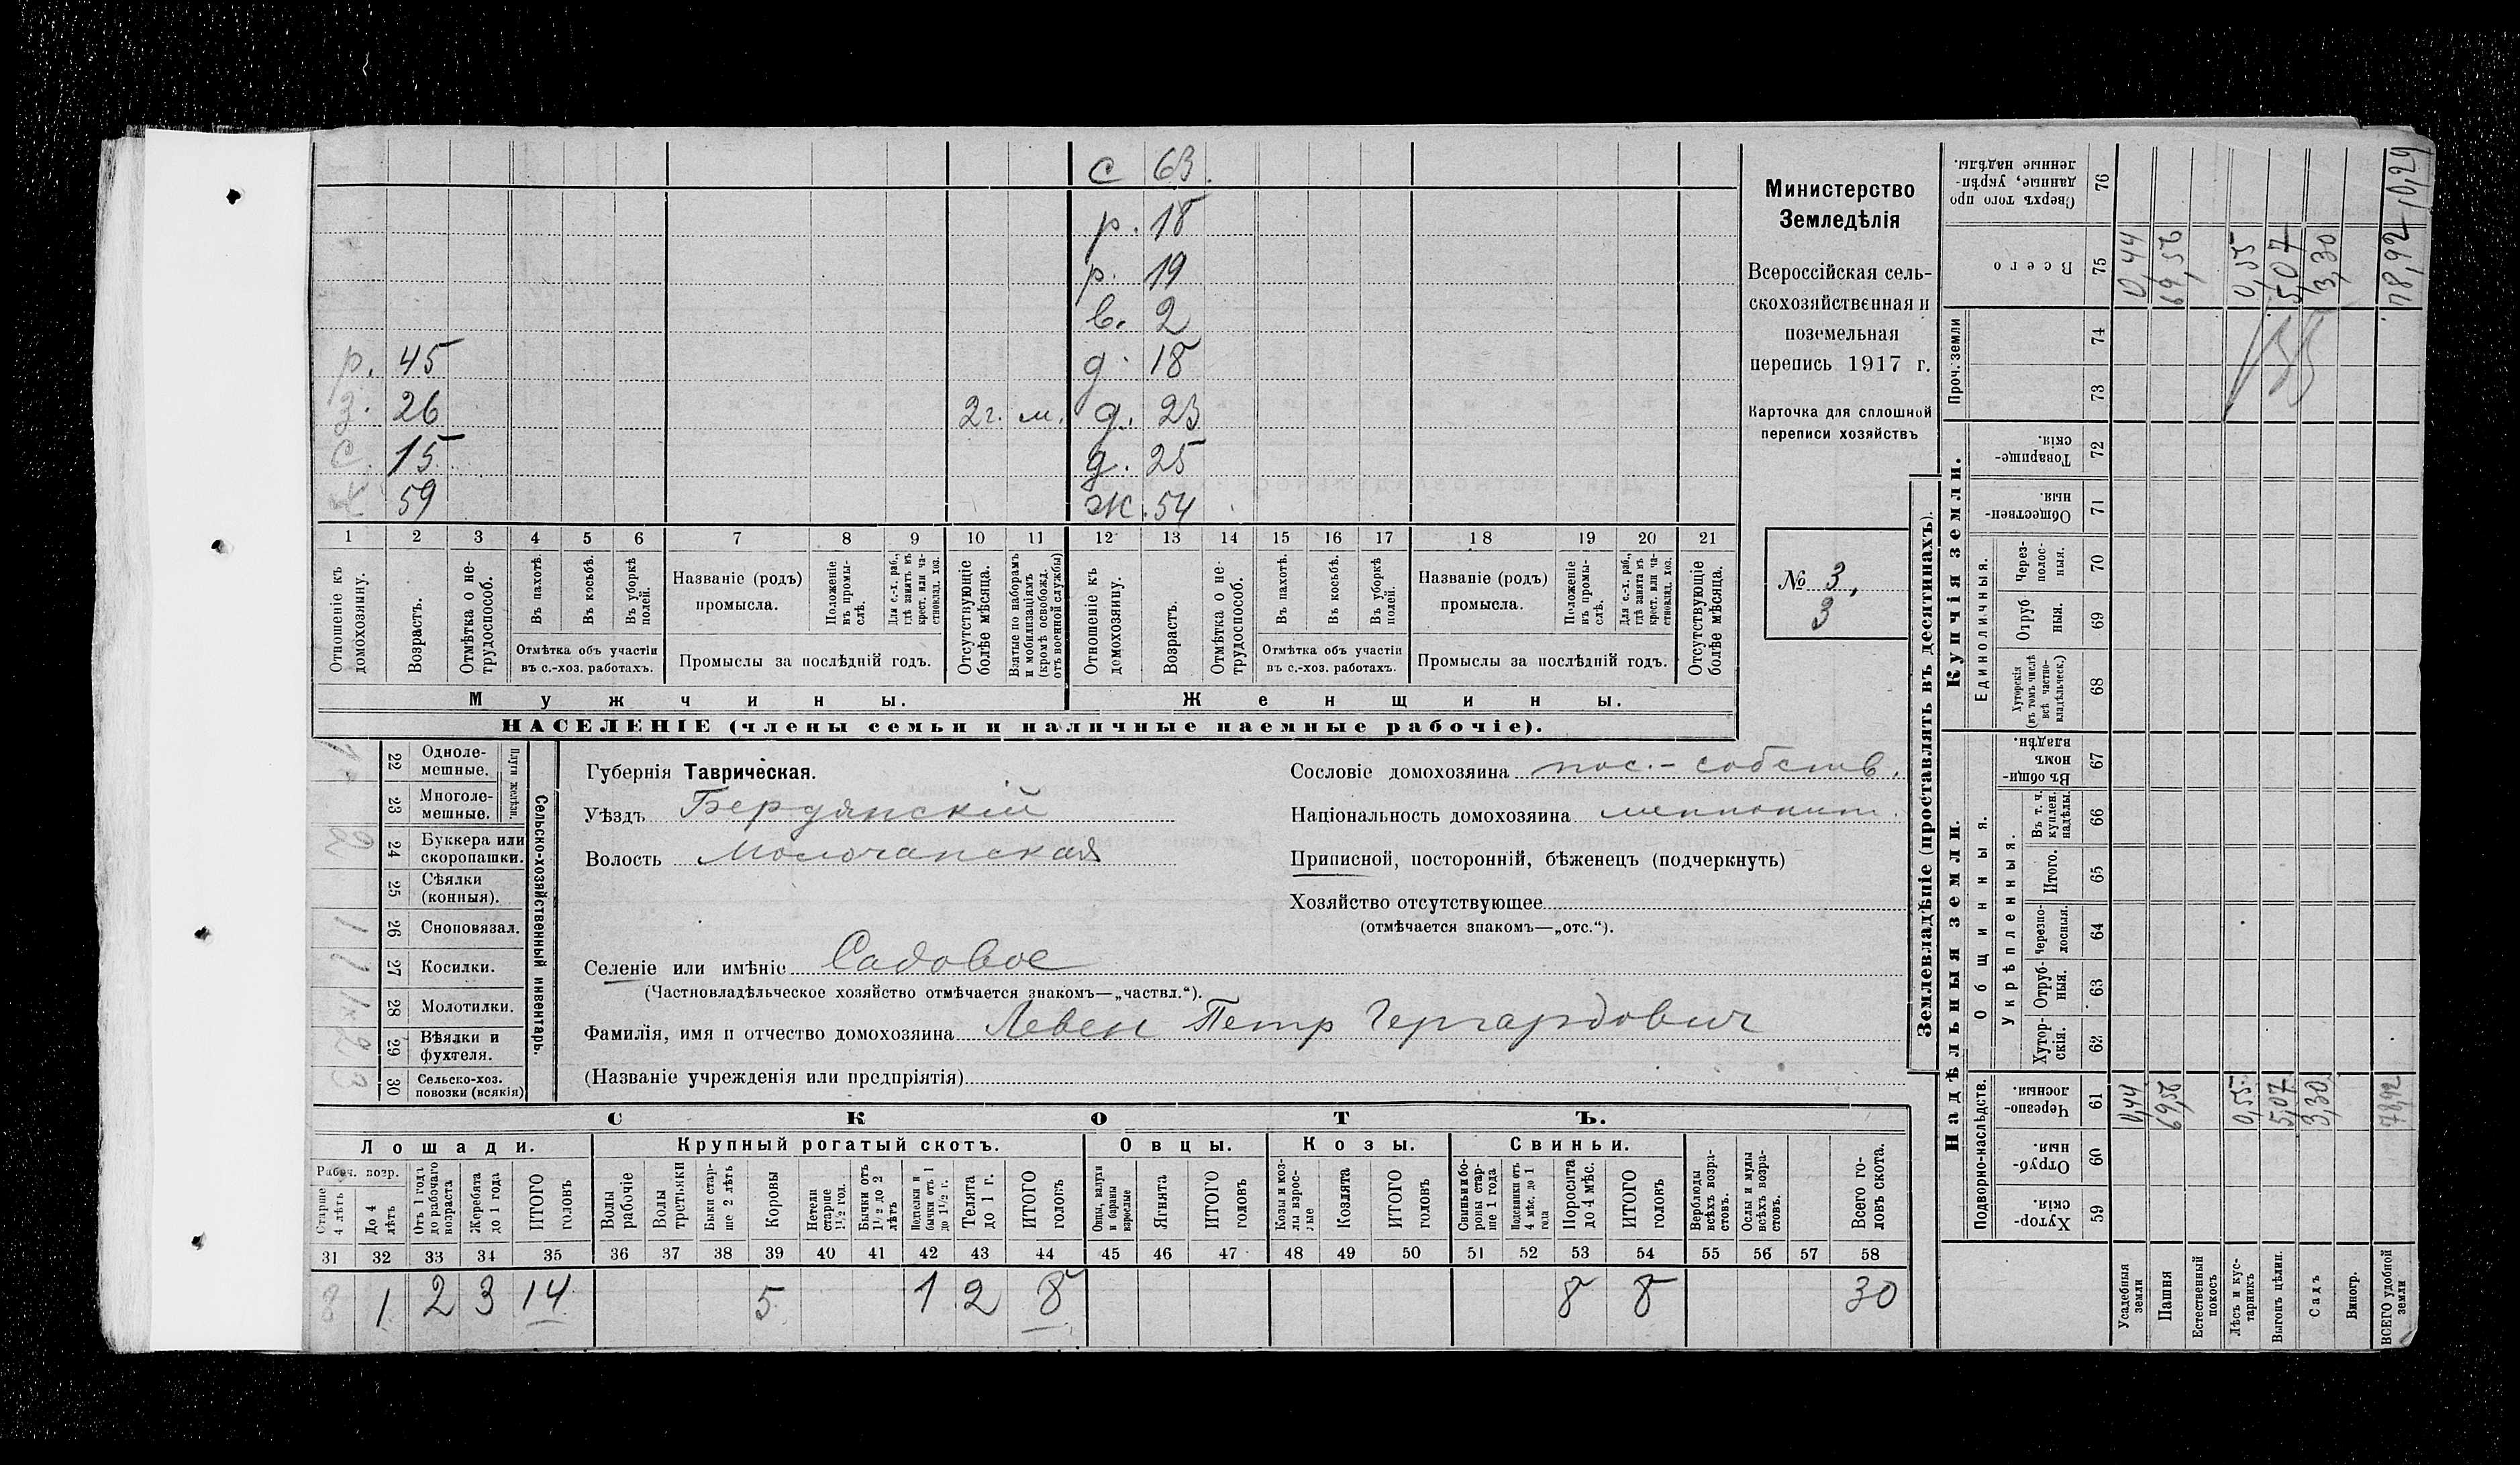 с 63.
р. 18
р. 19
в. 2
р. 45 д. 18
з. 26 2 г. м. д. 23
с. 15 д. 25
59 ж. 54
1 2 3 4 5 6 7 8 9 10 11 12 13 14 15 16 17 18 19 20 21
Отношеніе къ домохозяину.
Возрастъ.
Отмѣтка о не-трудоспособ.
Въ пахотѣ.
Въ косьбѣ.
Въ уборкѣ полей.
Отмѣтка объ участіи
въ с.-хоз. работахъ.
Названіе (родъ)
промысла.
Положеніе въ промы-слѣ.
Для с.-х. раб., гдѣ занятъ въ крест. или ча-стновлад. хоз.
Промыслы за послѣдній годъ.
Отсутствующіе болѣе мѣсяца.
Взятые по наборамъ и мобилизаціямъ (кромѣ освобожд. отъ военной службы)
Отношеніе къ домохозяину.
Возрастъ.
Отмѣтка о не-трудоспособ.
Въ пахотѣ.
Въ косьбѣ.
Въ уборкѣ полей.
Отмѣтка объ участіи
въ с.-хоз. работахъ.
Названіе (родъ)
промысла.
Положеніе въ промы-слѣ.
Для с.-х. раб., гдѣ занята въ крест. или ча-стновлад. хоз.
Промыслы за послѣдній годъ.
Отсутствующіе болѣе мѣсяца.
Мужчины. Женщины.
НАСЕЛЕНІЕ (члены семьи и наличные наемные рабочіе).
Министерство
Земледѣлія
Всероссійская сель-
скохозяйственная и
поземельная
перепись 1917 г.
Карточка для сплошной
переписи хозяйствъ
№ 3,
3
22 Одноле-
мешные.
23 Многоле-
мешные.
Плуги желѣзн.
24 Буккера или
скоропашки.
25 Сѣялки
(конныя).
26 Сноповязал.
27 Косилки.
28 Молотилки.
29 Вѣялки и
фухтеля.
30 Сельско-хоз.
повозки (всякія)
Сельско-хозяйственный инвентарь.
Губернія Таврическая.
Уѣздъ Бердянскій
Волость Молочанская
Селеніе или имѣніе Садовое
(Частновладѣльческое хозяйство отмѣчается знакомъ—„частвл.“).
Фамилія, имя и отчество домохозяина Левен Петр Гергардович
(Названіе учрежденія или предпріятія)
Сословіе домохозяина пос.-собств.
Національность домохозяина меннонит.
Приписной, посторонній, бѣженецъ (подчеркнуть)
Хозяйство отсутствующее
(отмѣчается знакомъ—„отс.“).
СКОТЪ.
Лошади. Крупный рогатый скотъ. Овцы. Козы. Свиньи.
Рабоч. возр.
Старше 4 лѣтъ
До 4 лѣтъ
Отъ 1 года до рабочаго возраста
Жеребята до 1 года
ИТОГО головъ
Волы рабочіе
Волы третьяки
Быки стар-ше 2 лѣтъ
Коровы
Нетели старше 1½ год.
Бычки отъ 1½ до 2 лѣтъ
Подтелки и бычки отъ 1 до 1½ г.
Телята до 1 г.
ИТОГО головъ
Овцы, валухи и бараны взрослые
Ягнята
ИТОГО головъ
Козы и коз-лы взрос-лые
Козлята
ИТОГО головъ
Свиньи и бо-ровы стар-ше 1 года
Подсвинки отъ 4 мѣс. до 1 года
Поросята до 4 мѣс.
ИТОГО головъ
Верблюды всѣхъ возра-стовъ.
Ослы и мулы всѣхъ возра-стовъ.
Всего го-ловъ скота.
31 32 33 34 35 36 37 38 39 40 41 42 43 44 45 46 47 48 49 50 51 52 53 54 55 56 57 58
8 1 2 3 14 5 1 2 8 8 8 30
Землевладѣніе (проставлять въ десятинахъ).
Надѣльныя земли. Купчія земли.
Подворно-наслѣдств.
Общинныя.
Укрѣпленныя.
Единоличныя.
Проч. земли
Хутор-скія. 59
Отруб-ныя. 60
Черезпо-лосныя. 61
Хутор-скія. 62
Отруб-ныя. 63
Черезпо-лосныя. 64
Итого. 65
Въ т. ч. куплен. надѣлы. 66
Въ общин-номъ владѣн. 67
Хуторскія (въ томъ числѣ всѣ частно-владѣльческ.) 68
Отруб ныя. 69
Через-полос-ныя. 70
Обществен-ныя. 71
Товарище-скія. 72
73
74
Всего 75
Сверхъ того про данные, укрѣп-ленные надѣлы. 76
Усадебныя земли 0,44 0,44
Пашня 69,56 69,56
Естественный покосъ
Лѣсъ и кус-тарникъ 0,55 0,55
Выгонъ цѣлин. 5,07 5,07
Садъ 3,30 3,30
Виногр.
ВСЕГО удобной земли 78,92 78,92 10,29